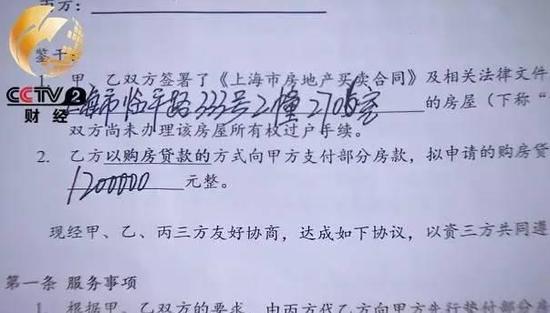 丙方:
鉴于:
CCTV 2
财经
1. 甲、乙双方签署了《上海市房地产买卖合同》及相关法律文件
上海市临平路333号2幢2706室 的房屋(下称“
双方尚未办理该房屋所有权过户手续。
2. 乙方以购房贷款的方式向甲方支付部分房款,拟申请的购房贷
1200000 元整。
现经甲、乙、丙三方友好协商,达成如下协议,以资三方共同遵
第一条 服务事项
1. 根据甲、乙双方的要求,由丙方代乙方向甲方先行垫付部分房